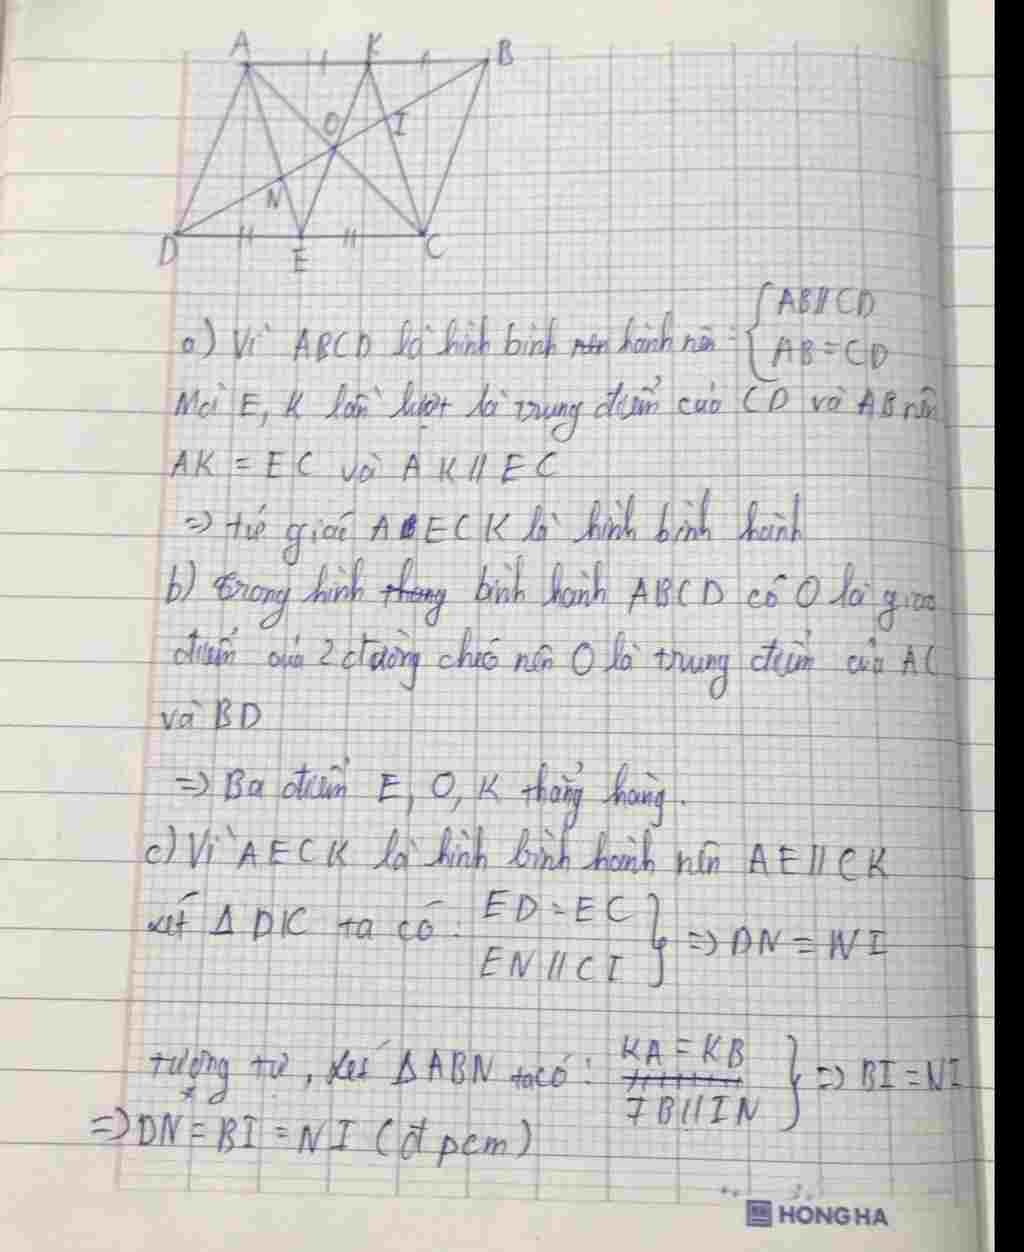 A K B
O I
N
D E C
a) Vì ABCD là hình bình hành nên : { AB // CD
AB = CD
Mà E, K lần lượt là trung điểm của CD và AB nên
AK = EC và AK // EC
=> tứ giác AECK là hình bình hành
b) trong hình bình hành ABCD có O là giao
điểm của 2 đường chéo nên O là trung điểm của AC
và BD
=> Ba điểm E, O, K thẳng hàng.
c) Vì AECK là hình bình hành nên AE // CK
xét Δ DIC ta có : ED = EC
EN // CI } => DN = NI
tương tự, xét Δ ABN ta có : KA = KB
B // IN } => BI = NI
=> DN = BI = NI (đpcm)
HONG HA